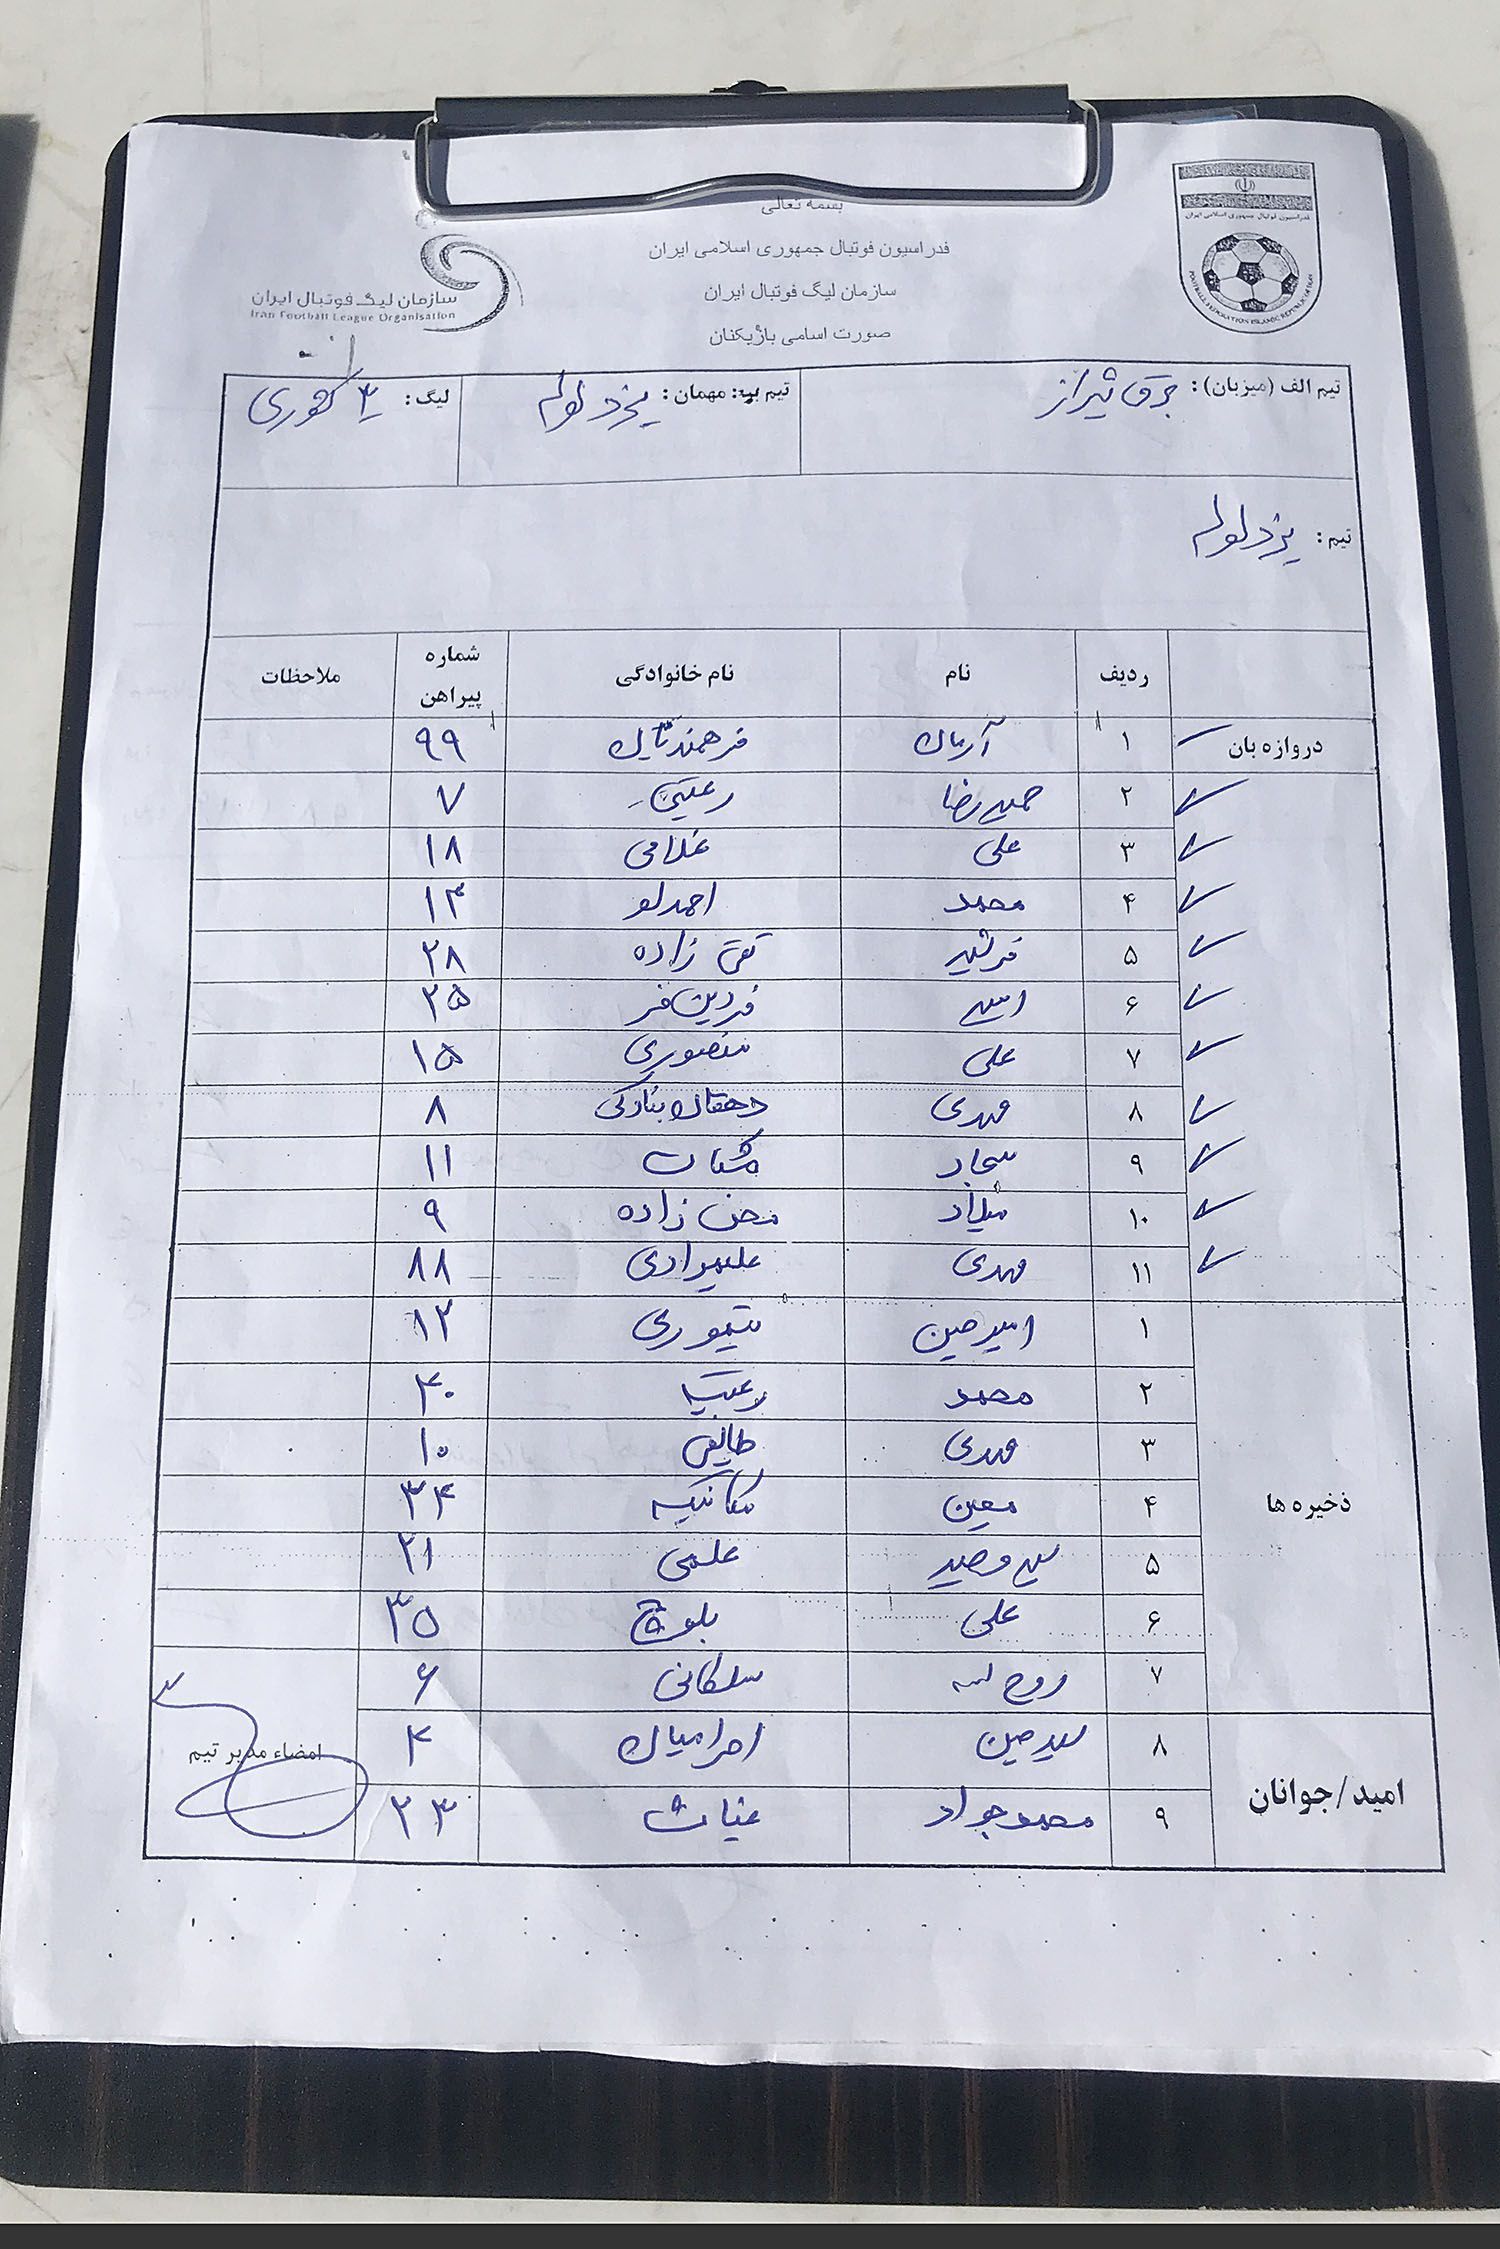 بسمه تعالی
فدراسیون فوتبال جمهوری اسلامی ایران
سازمان لیگ فوتبال ایران
صورت اسامی بازیکنان
سازمان لیگ فوتبال ایران
Iran Football League Organisation
فدراسیون فوتبال جمهوری اسلامی ایران
FOOTBALL FEDERATION ISLAMIC REPUBLIC OF IRAN
تیم الف (میزبان): برق شیراز تیم ب: مهمان: یزد لوله لیگ: ۳ کشوری
تیم: یزد لوله
ردیف نام نام خانوادگی شماره پیراهن ملاحظات
دروازه بان ۱ آرمان فرهمند ۹۹
۲ حمیدرضا رعیتی ۷
۳ علی غلامی ۱۸
۴ محمد احمدلو ۱۳
۵ فرشید تقی زاده ۲۸
۶ امیر فردین فر ۲۵
۷ علی منصوری ۱۵
۸ مهدی دهقان بنادکی ۸
۹ سجاد ۱۱
۱۰ میلاد زاده ۹
۱۱ مهدی علیمرادی ۸۸
ذخیره ها
۱ امیرحسین تیموری ۱۲
۲ محمد ۴۰
۳ مهدی طایفی ۱۰
۴ معین ۳۴
۵ علمی ۲۱
۶ علی بلوچ ۳۵
۷ روح اله سلطانی ۶
امید/جوانان
۸ سیدحسین احرامیان ۴
۹ محمدجواد غیاث ۲۳
امضاء مدیر تیم